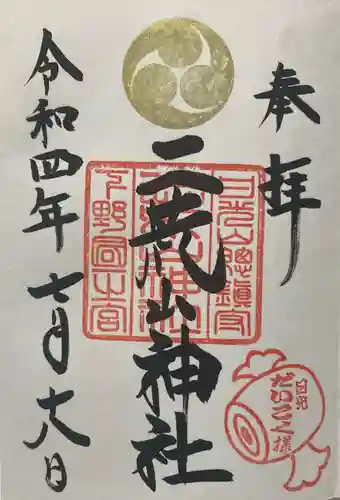 奉拝
二荒山神社
日光山総鎮守
二荒山神社
下野国一之宮
令和四年七月十八日
日光
だいこく様